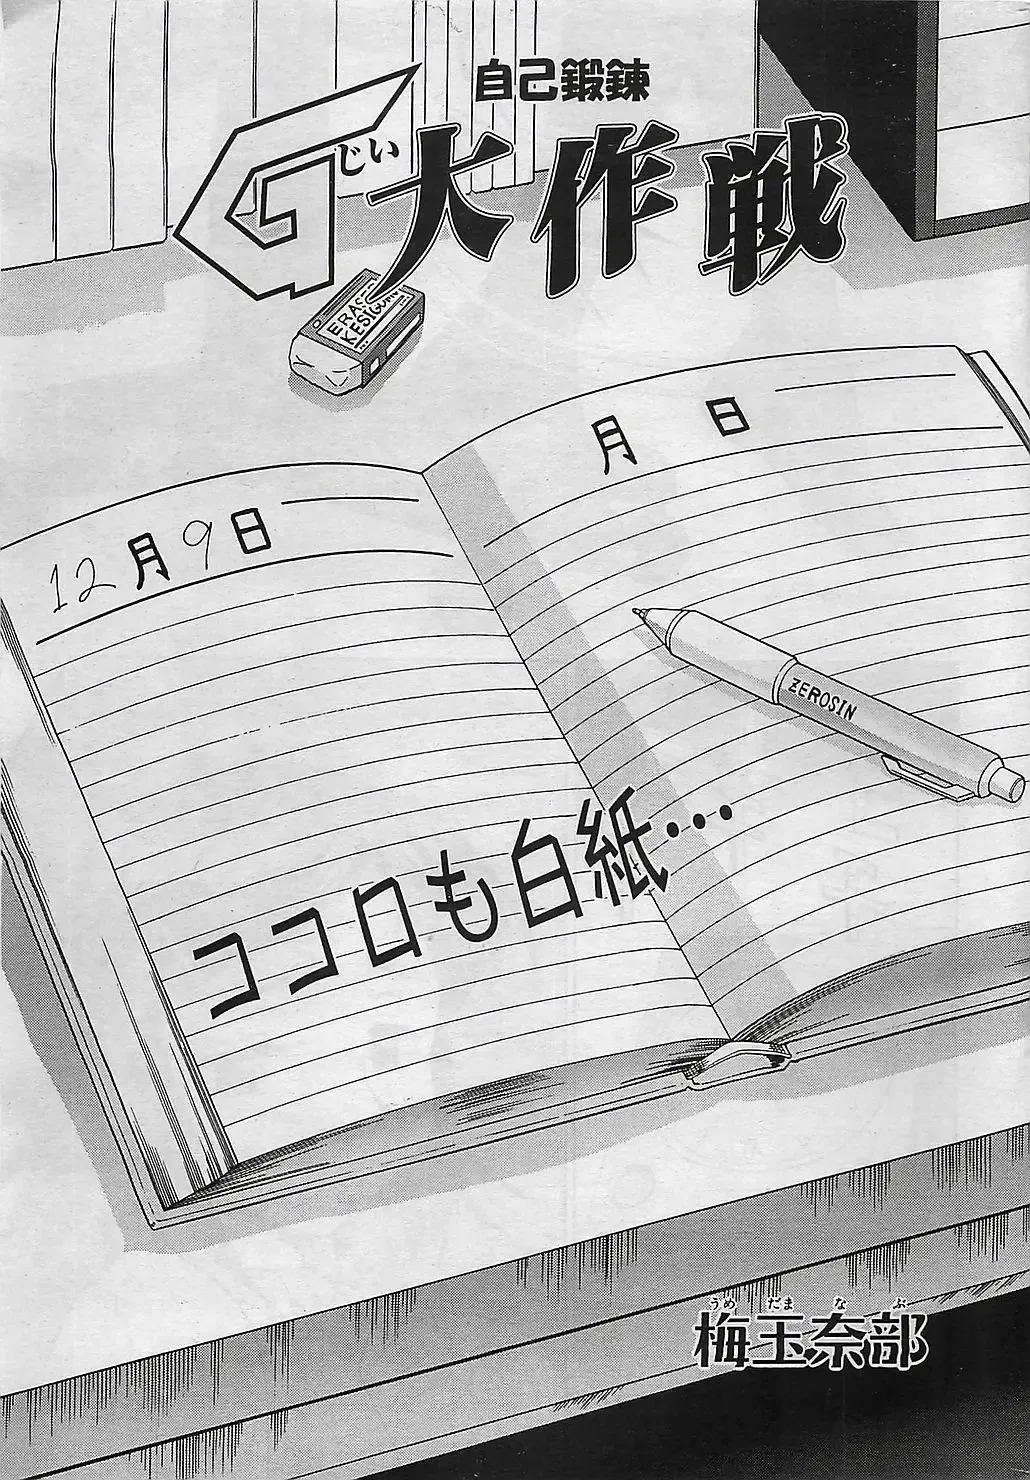 自己鍛錬
G大作戦
じい
ERAS
KESIGOM
月 日
12月9日
ZEROSIN
ココロも白紙…
うめ だま な ぶ
梅玉奈部